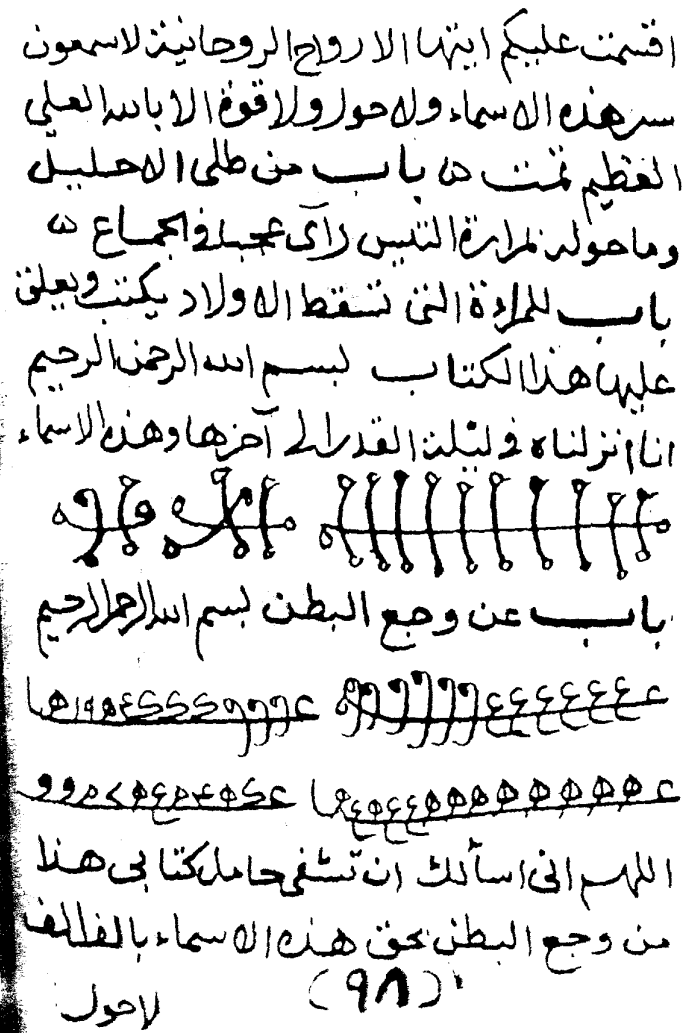 اقسمت عليكم ايتها الارواح الروحانية لاسمعون
سر هذه الاسماء ولا حول ولا قوة الا بالله العلي
العظيم تمت ۵ باب من طلى الاحليل
وما حوله بمرارة التيس رآى عجبا في الجماع ۵
باب للمراءة التي تسقط الاولاد يكتب ويعلق
عليها هذا الكتاب بسم الله الرحمن الرحيم
انا انزلناه في ليلة القدر الى آخرها وهذه الاسماء
باب عن وجع البطن بسم الله الرحمن الرحيم
اللهم اني اسألك ان تشفي حامل كتابي هذا
من وجع البطن بحق هذه الاسماء بالف الف
(٩٨)
لاحول